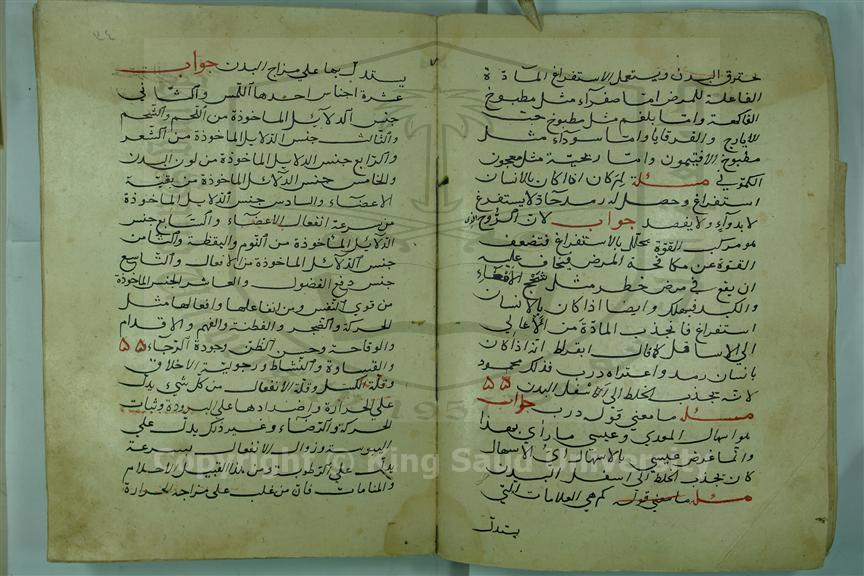 حقوق البدن ويستعمل الاستفراغ المادة
الفاعلة للمرض اما صفراء مثل مطبوخ
الفاكهة واما بلغم مثل مطبوخ حب
الايارج والغرقايا واما سوداء مثل
مطبوخ الافتيمون واما ريحية مثل معجون
الكموني مسئلة لم كان اذا كان بالانسان
استفراغ وحصل له رمد حاد لا يستفرغ
لا بدواء ولا يفصد جواب لان الروح الذي
هو مركب القوة يتحلل بالاستفراغ فتضعف
القوة عن مكافحة المرض فيخاف عليه
ان يقع في مرض خطر مثل
والكبد فيهلك وايضا اذا كان بالانسان
استفراغ فانجذب المادة من الاعالي
الى الاسافل كما قال ابقراط انه اذا كان
بانسان رمد واعتراه درب فذلك محمود
لانه ينجذب الخلط الى الاسفل البدن ۵۵
مسئلة ما معنى قول درب جواب
هو اسهال المودي وعيسى ما رأى بهذا
وانما غرض عيسى بالاسهال اي الاسهال
كان يجذب الخلط الى اسفل البدن
مسئلة ما معنى قول كم هي العلامات التي
يستدل
يستدل بها على مزاج البدن جواب
عشرة اجناس احدها اللمس والثاني
جنس الدلائل الماخوذة من اللحم والشحم
والثالث جنس الدلايل الماخوذة من الشعر
والرابع جنس الدلايل الماخوذة من لون البدن
والخامس جنس الدلائل الماخوذة من بقية
الاعضاء والسادس جنس الدلايل الماخوذة
من سرعة انفعال الاعضاء والسابع جنس
الدلايل الماخوذة من النوم واليقظة والثامن
جنس الدلائل الماخوذة من الافعال والتاسع
جنس دفع الفضول والعاشر الجنس الماخوذة
من قوى النفس ومن انفاعلها وافعالها مثل
الحركة والضجر والفطنة والفهم والاقدام
والوقاحة وحسن الظن وجودة الرجاء ۵۵
والقساوة والنشاط ورجولية الاخلاق
وقلة الكسل وقلة الانفعال من كل شيء يدل
على الحرارة واضدادها على البرودة وثبات
الحركة والرضاء وغير ذلك يدل على
اليبوسة وزوال الانفعال بسرعة
يدل على الرطوبة ومن هذا القبيل الاحلام
والمنامات فان من غلب على مزاجه الحرارة
Copyright © King Saud University
195